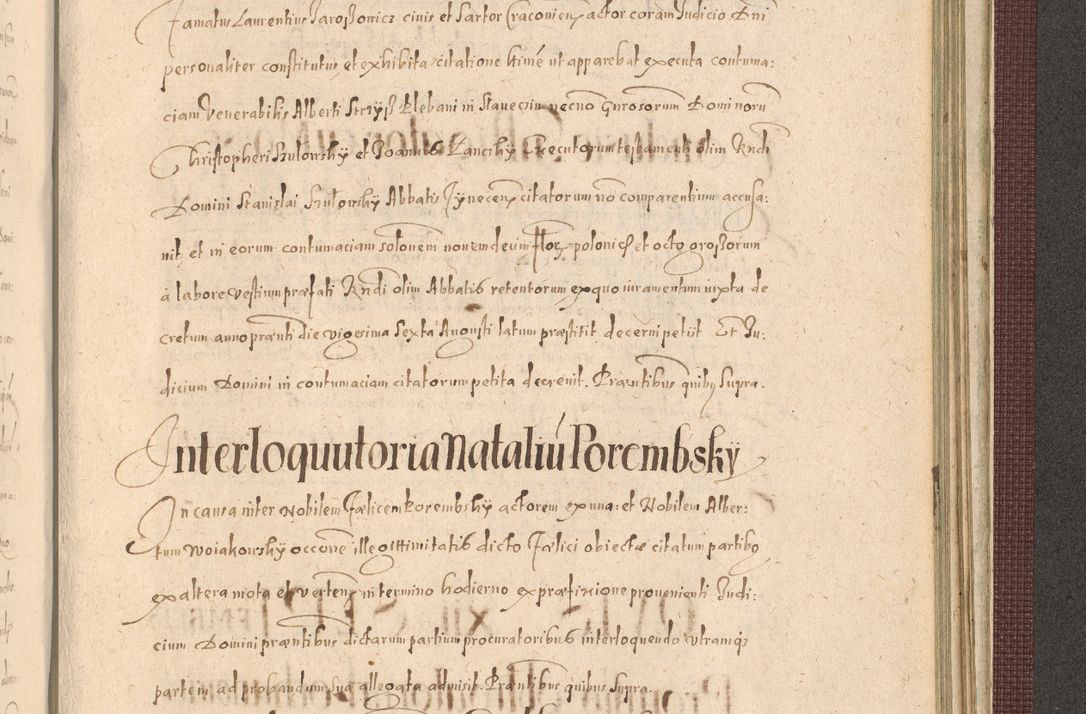 Famatus Laurentius Jaroszowicz civis et Sartor Cracovien actor coram Judicio Dni
personaliter constitutus et exhibita citatione hmoi ut apparebat executa contuma:
ciam Venerabilis Alberti Strzyß Plebani in necno Gnrosorum Dominorum
Christopheri Szulowsky et Joannis Lanczky Executorum testamenti olim Rndi
Domini Stanislai Szulowsky Abbatis citatorum no comparentium accusa:
vit et in eorum contumaciam solonem novemdecim flor polonich et octo großorum
à labore vestium præfati Rndi olim Abbatis retentorum ex quo iuramentum iuxta de
cretum anno prænti die vigesima Sexta Augusti latum præstitit decerni petiit Et Ju:
dicium Domini in contumaciam citatorum petita decrevit. Præntibus quibus Supra.
Interloquutoria Nataliu Porembsky
In causa inter Nobilem Fælicem Porembsky actorem ex una: et Nobilem Alber:
tum Woiakowsky occone illegittimitatis dicto Fælici obiectæ citatum partibus
ex altera mota et verten in termino hodierno ex præfixione provenienti Judi:
cium Domini præntibus dictarum partium procuratoribus interloquendo utramque
partem ad probandum sua allegata admisit. Præntibus quibus Supra.